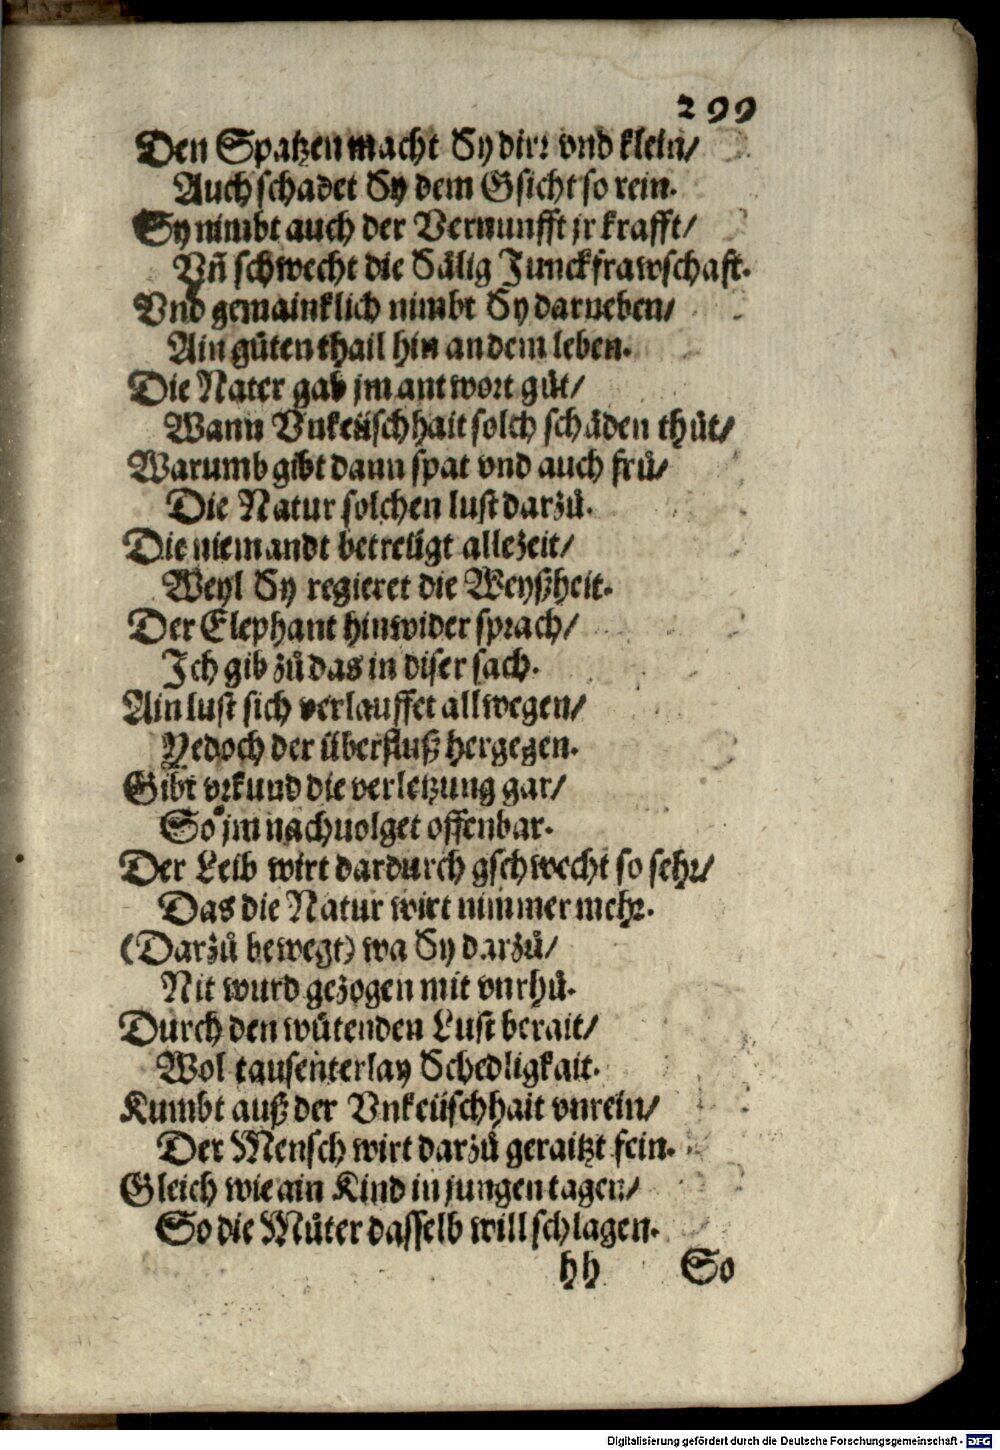 299
Den Spatzen macht Sy dirr vnd klein/
Auch schadet Sy dem Gsicht so rein.
Sy nimbt auch der Vernunfft jr krafft/
Vñ schwecht die Sälig Junckfrawschaft.
Vnd gemainklich nimbt Sy darneben/
Ain gůten thail hin an dem leben.
Die Nater gab jm antwort gůt/
Wann Vnkeüschhait solch schäden thůt/
Warumb gibt dann spat vnd auch frů/
Die Natur solchen lust darzů.
Die niemandt betreügt allezeit/
Weyl Sy regieret die Weyßheit.
Der Elephant hinwider sprach/
Ich gib zů das in diser sach.
Ain lust sich verlauffet allwegen/
Yedoch der überfluß hergegen.
Gibt vrkund die verletzung gar/
So jm nachuolget offenbar.
Der Leib wirt dardurch gschwecht so sehr/
Das die Natur wirt nimmer mehr.
(Darzů bewegt) wa Sy darzů/
Nit wurd gezogen mit vnrhů.
Durch den wütenden Lust berait/
Wol tausenterlay Schedligkait.
Kumbt auß der Vnkeüschhait vnrein/
Der Mensch wirt darzů geraitzt fein.
Gleich wie ain Kind in jungen tagen/
So die Můter dasselb will schlagen.
hh So
Digitalisierung gefördert durch die Deutsche Forschungsgemeinschaft - DFG